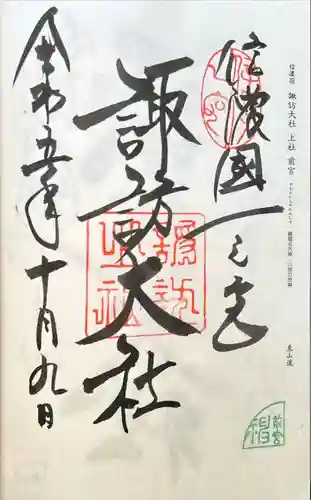 信濃国 諏訪大社 上社 前宮
東山道
信濃國一之宮
諏訪大社
令和五年十月九日
前宮